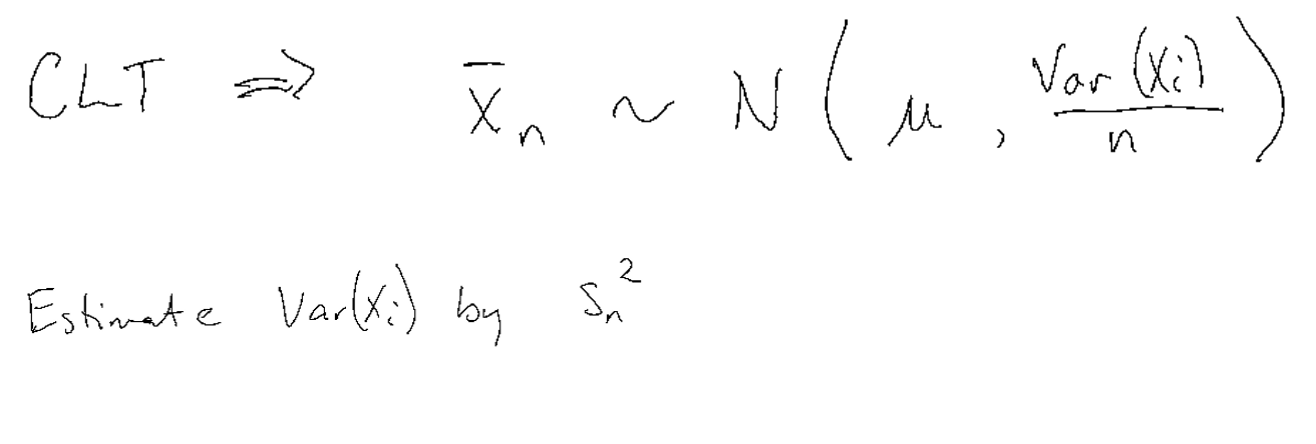 CLT ⇒ X̄ₙ ~ N ( μ , Var (Xᵢ) / n )
Estimate Var(Xᵢ) by Sₙ²